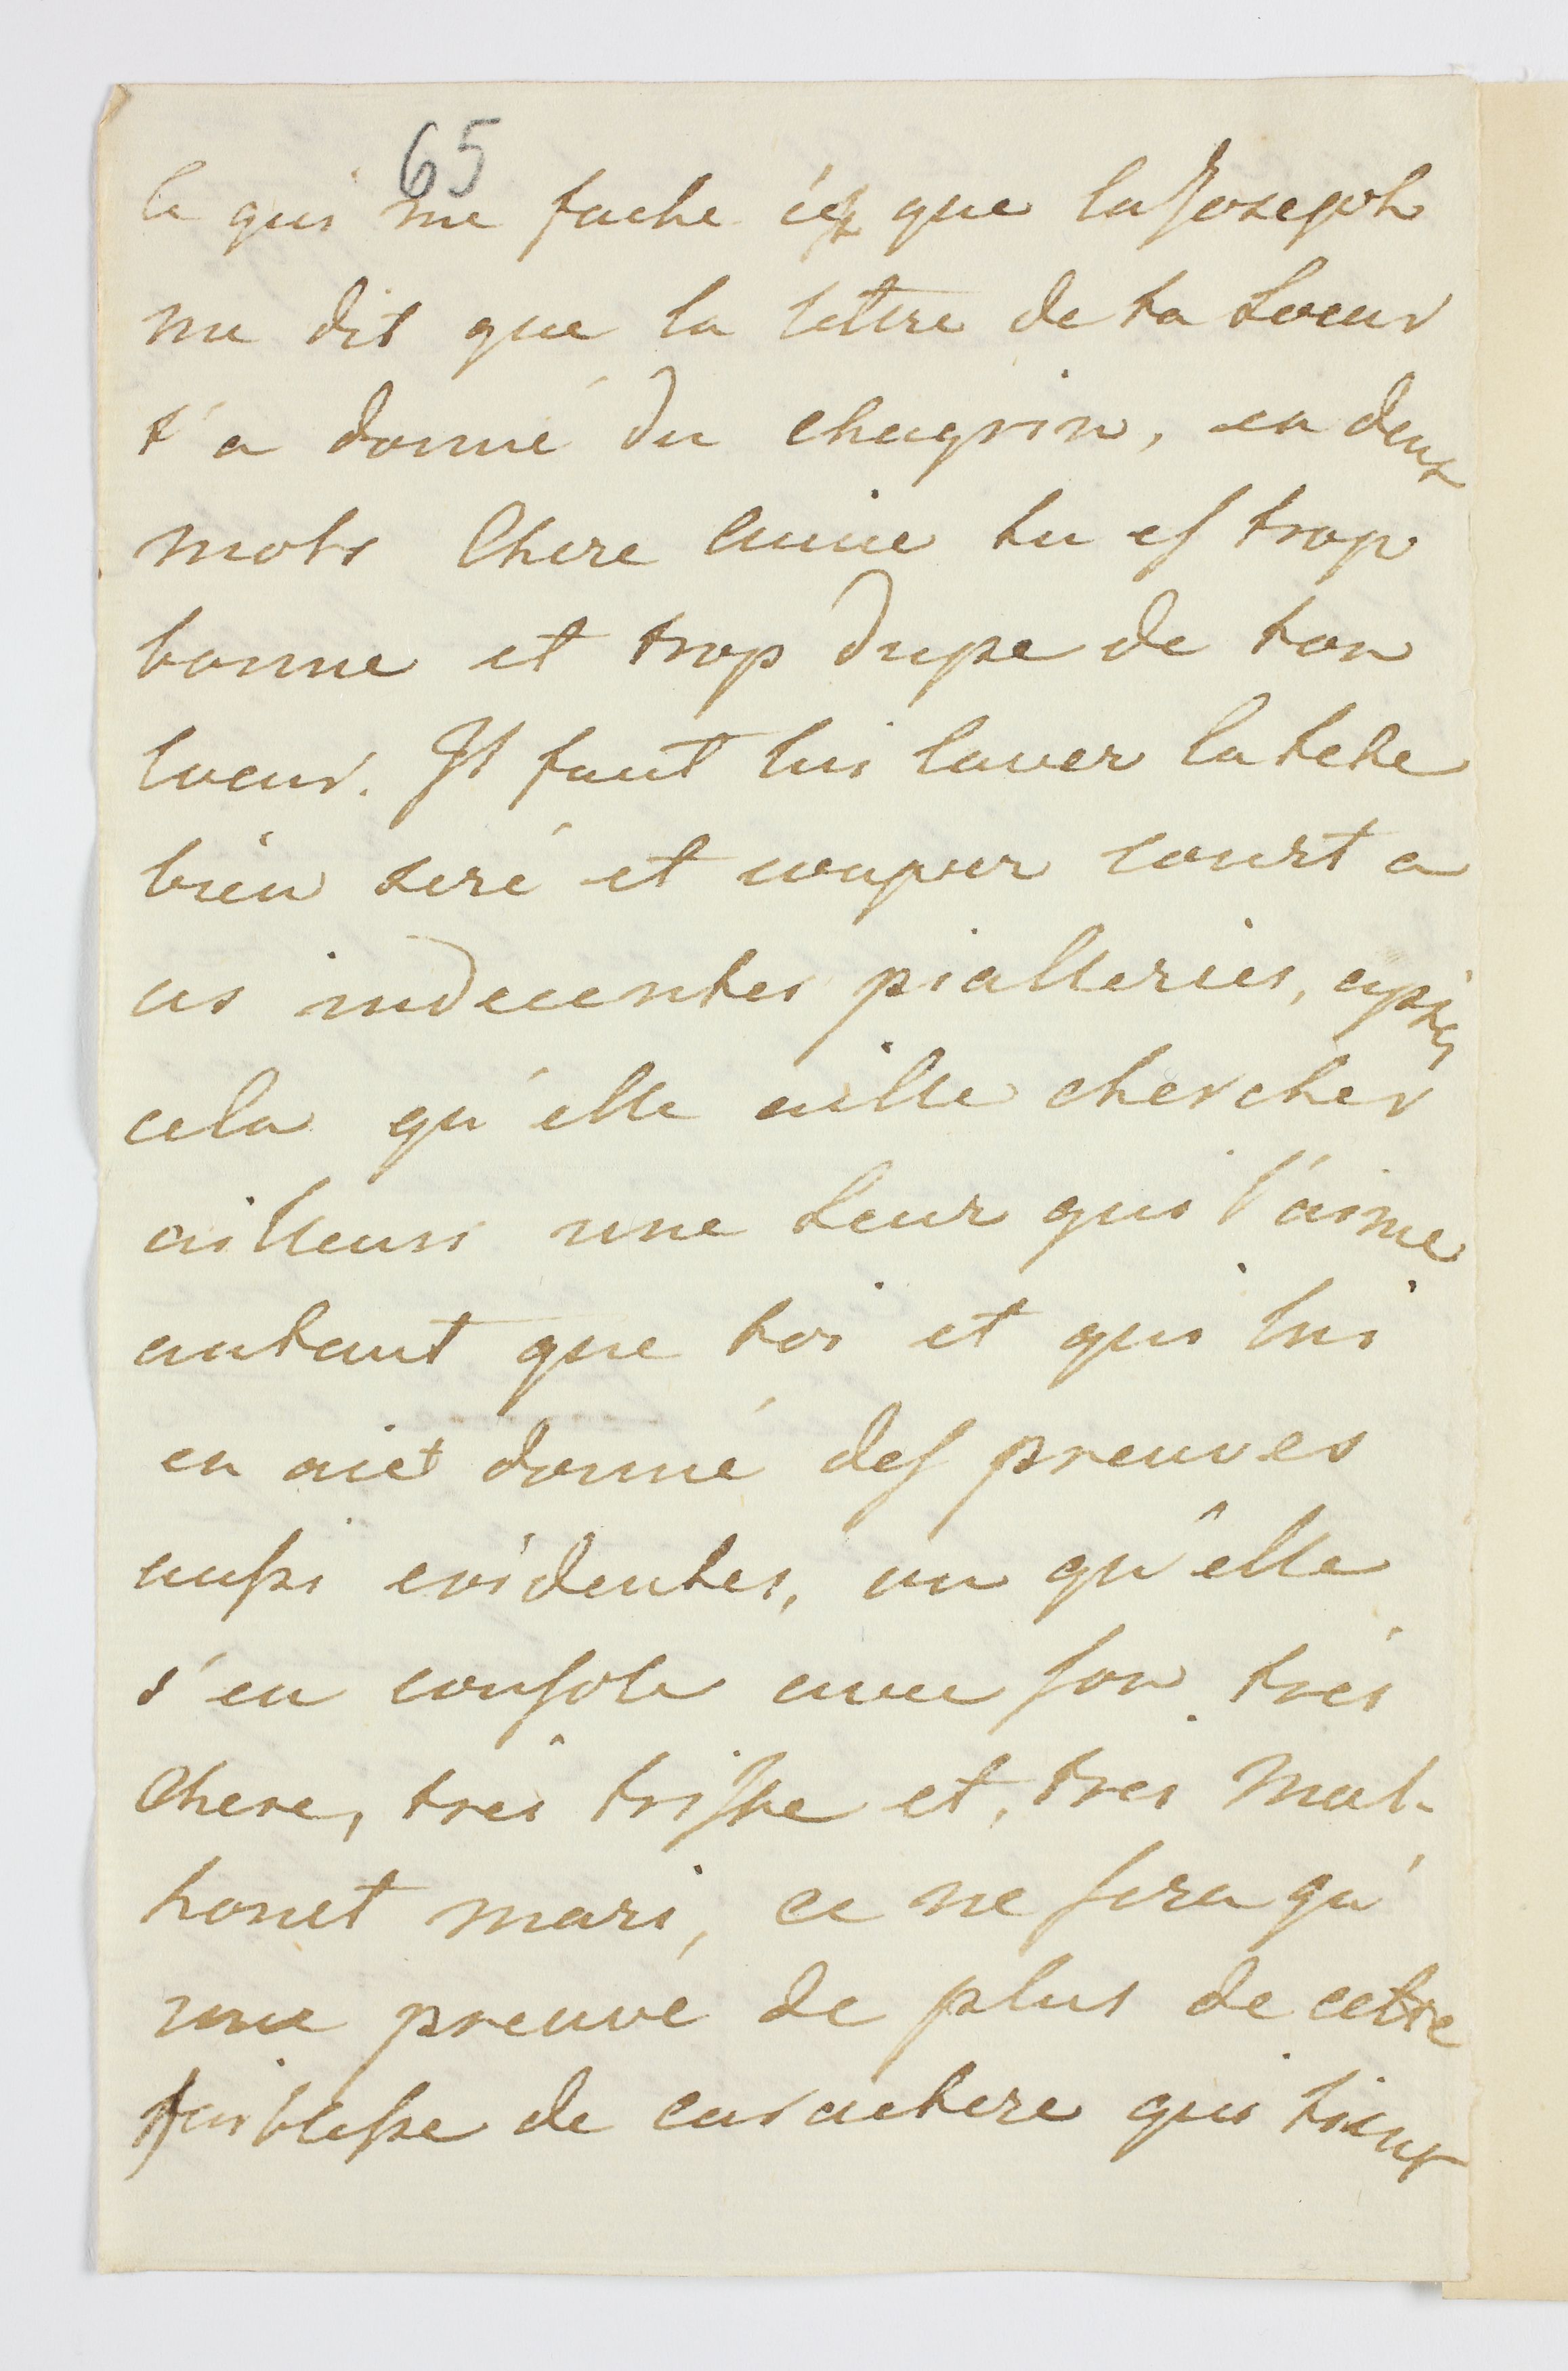 65
Ce qui me fache c'est que la Joseph
me dit que la lettre de ta Soeur
t'a donné du chagrin, en deux
mots Chere amie tu es trop
bonne et trop dupe de ton
Coeur. Il faut lui laver la tete
bien seré et couper court a
ces indecentes pialleries, après
cela qu'elle aille chercher
ailleurs une Seur qui l'aime
autant que toi et qui lui
en aiet donné des preuves
aussi evidentes, ou qu'elle
s'en console avec son très
Chere, très triste et, tres mal-
honet mari, ce ne sera qu'
une preuve de plus de cette
faiblesse de caractere qui tient